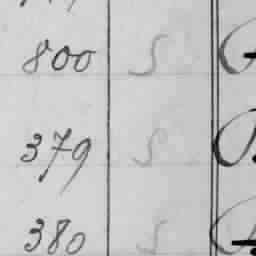 800 S
379 S
380 S